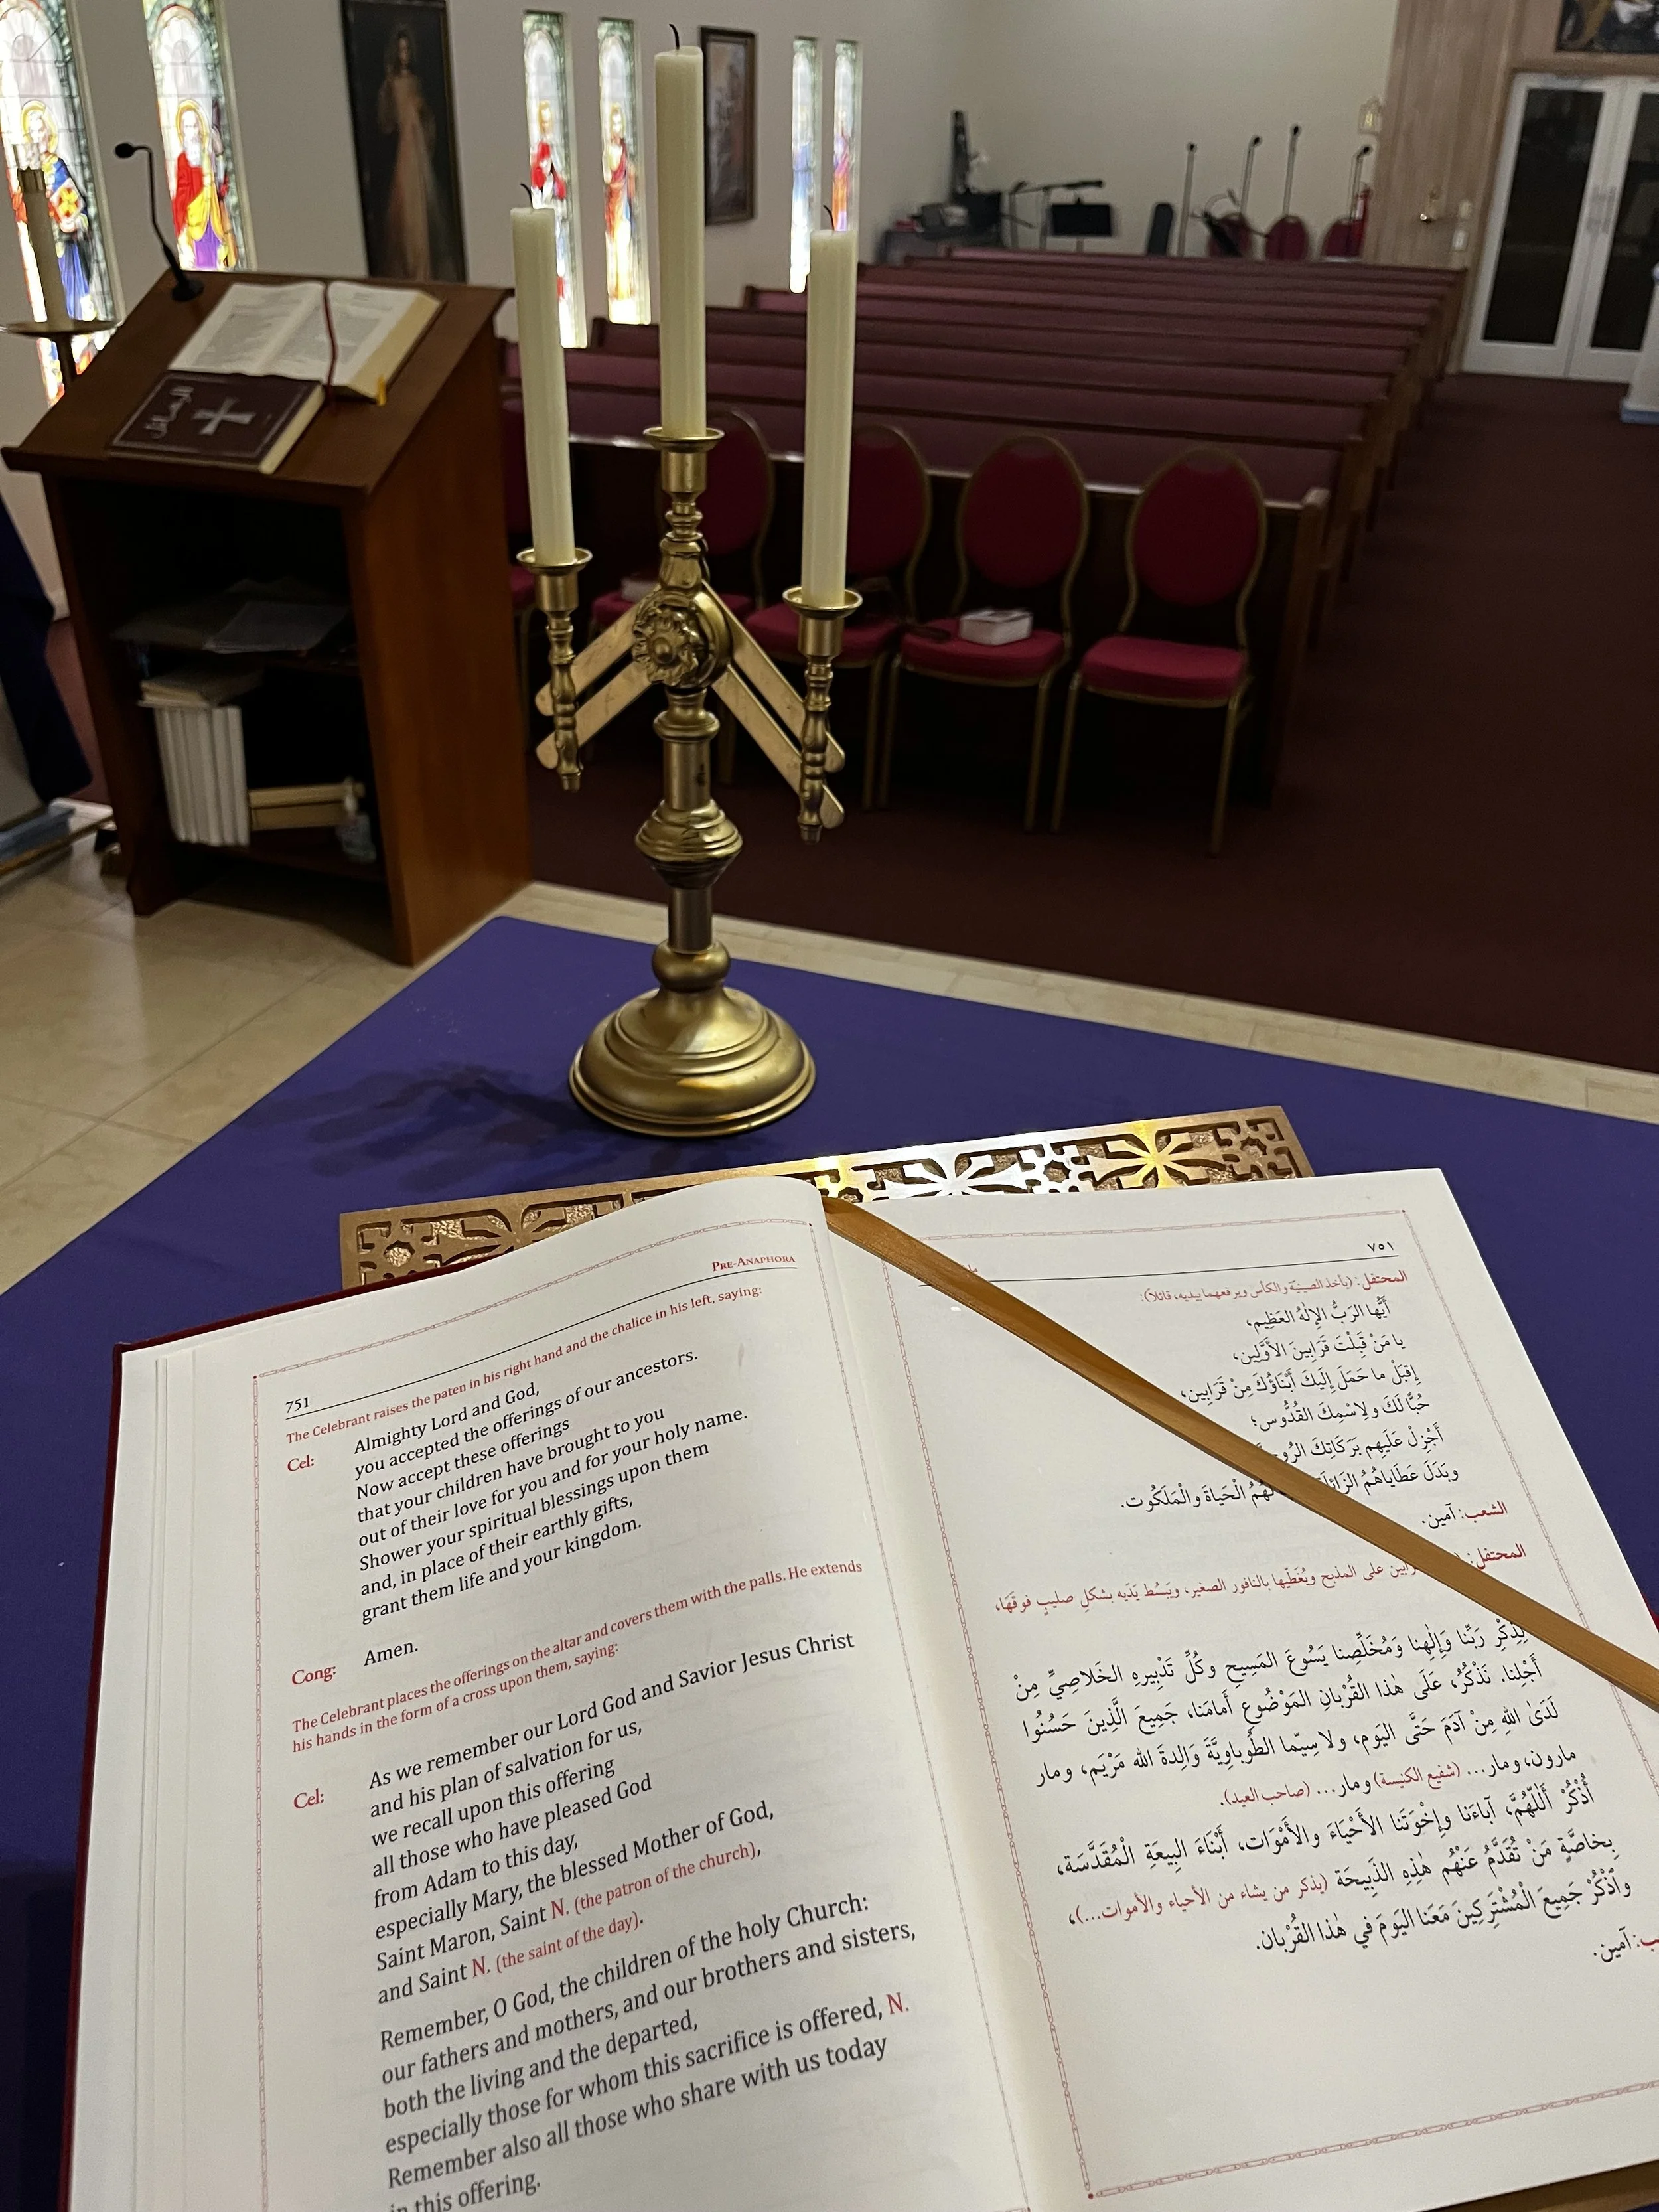 PRE-ANAPHORA
751
The Celebrant raises the paten in his right hand and the chalice in his left, saying:
Cel: Almighty Lord and God,
you accepted the offerings of our ancestors.
Now accept these offerings
that your children have brought to you
out of their love for you and for your holy name.
Shower your spiritual blessings upon them
and, in place of their earthly gifts,
grant them life and your kingdom.
Cong: Amen.
The Celebrant places the offerings on the altar and covers them with the palls. He extends
his hands in the form of a cross upon them, saying:
Cel: As we remember our Lord God and Savior Jesus Christ
and his plan of salvation for us,
we recall upon this offering
all those who have pleased God
from Adam to this day,
especially Mary, the blessed Mother of God,
Saint Maron, Saint N. (the patron of the church),
and Saint N. (the saint of the day).
Remember, O God, the children of the holy Church:
our fathers and mothers, and our brothers and sisters,
both the living and the departed,
especially those for whom this sacrifice is offered, N.
Remember also all those who share with us today
in this offering.
٧٥١
المحتفل: (يأخذ الصينيّة والكأس ويرفعهما بيديه، قائلاً):
أَيُّها الرَبُّ الإِلٰهُ العَظِيم،
يا مَنْ قَبِلْتَ قَرَابِينَ الأَوَّلِين،
إِقبَلْ ما حَمَلَ إِلَيكَ أَبْنَاؤُكَ مِنْ قَرَابِين،
حُبًّا لَكَ ولِاسْمِكَ القُدُّوس؛
أَجْزِلْ عَلَيهِم بَرَكَاتِكَ
وبَدَلَ عَطَايَاهُمُ الْحَيَاةَ والْمَلَكُوت.
الشعب: آمين.
المحتفل: على المذبح ويُغَطّيها بالنافور الصغير، ويَبسُط يَدَيه بشكلِ صليبٍ فوقَهَا،
لِذِكْرِ رَبِّنا وَإِلٰهِنا وَمُخَلِّصِنا يَسُوعَ المَسِيحِ وكُلِّ تَدْبِيرِهِ الخَلَاصِيِّ مِنْ
أَجْلِنا. نَذْكُرُ، عَلَى هٰذا القُرْبانِ المَوْضُوعِ أَمَامَنا، جَمِيعَ الَّذِينَ حَسُنُوا
لَدَى اللهِ مِنْ آدَمَ حَتَّى اليَوم، ولا سِيَّما الطُوباوِيَّةَ وَالِدةَ الله مَرْيَم، ومار
مارون، ومار... (شفيع الكنيسة) ومار... (صاحب العيد).
أُذْكُرْ أَللّٰهُمَّ، آباءَنا وإِخْوَتَنا الأَحْيَاءَ والأَمْوَات، أَبْنَاءَ البِيعَةِ الْمُقَدَّسَة،
بِخاصَّةٍ مَنْ تُقَدَّمُ عَنْهُم هٰذِهِ الذَبِيحَة (يذكر من يشاء من الأحياء والأموات...)،
وٱذْكُرْ جَمِيعَ الْمُشْتَرِكِينَ مَعَنا اليَومَ في هٰذا القُرْبان.
آمين.